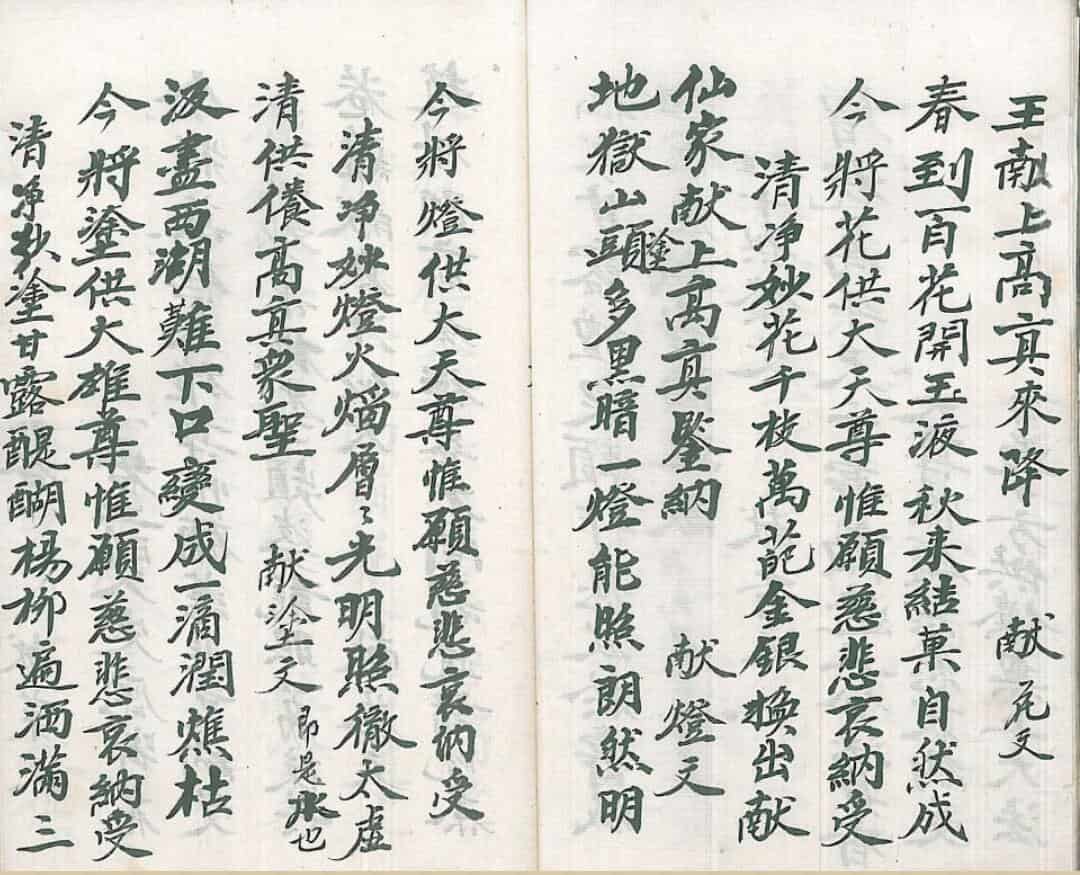 王献上高真來降 献花文
春到百花開玉液秋来結菓自然成
今將花供大天尊惟願慈悲哀納受
清净妙花千枝萬葩金銀换出献
仙家献上高真鑒納 献燈文
地獄山頭多黑暗一燈能照朗然明
塗
今將燈供大天尊惟願慈悲哀纳受
清净妙燈火焰層々光明照徹太虚
清供養高真衆聖 献塗文 即是水也
汲盡西湖難下口變成一滴潤燋枯
今將塗供大雄尊惟願慈悲哀納受
清净妙塗甘露醍醐楊柳遍洒滿三